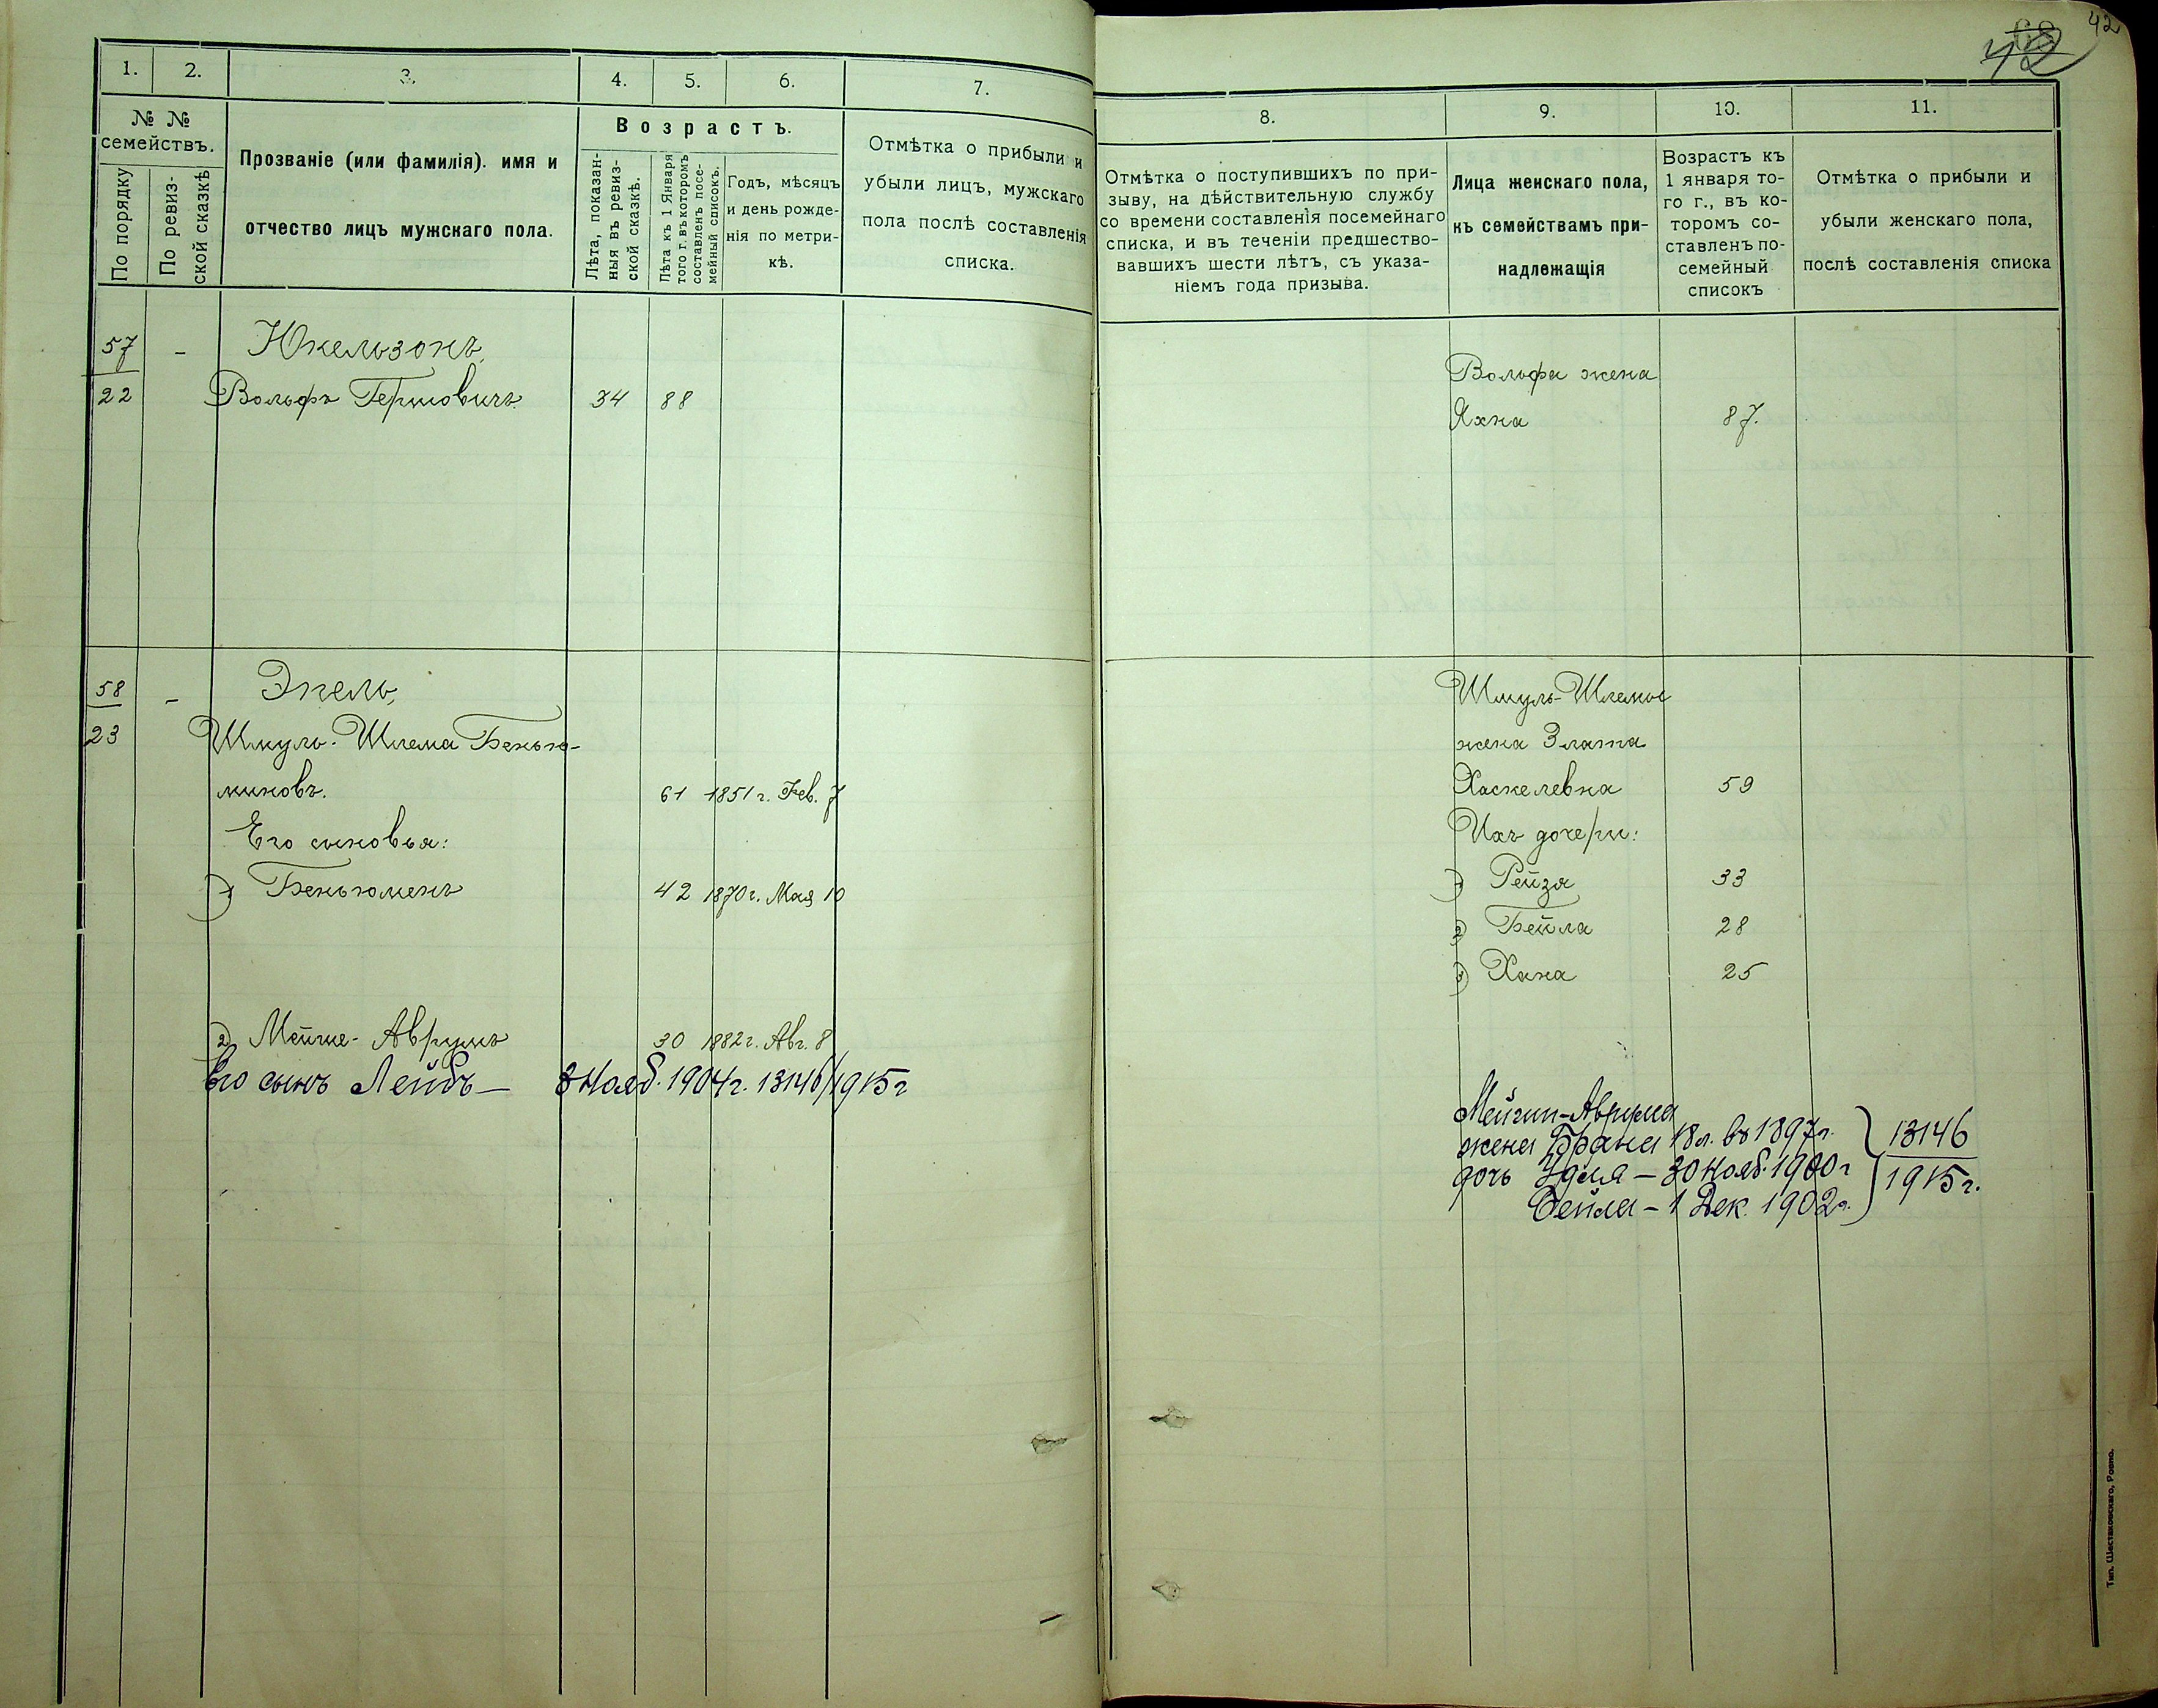 42
42
1. 2. 3. 4. 5. 6. 7.
№ № семействъ.
По порядку
По ревиз-
ской сказкѣ
Прозваніе (или фамилія). имя и
отчество лицъ мужскаго пола.
Возрастъ.
Лѣта, показан-
ныя въ ревиз-
ской сказкѣ.
Лѣта къ 1 Января
того г. въ которомъ
составленъ посе-
мейный списокъ.
Годъ, мѣсяцъ
и день рожде-
нія по метри-
кѣ.
Отмѣтка о прибыли и
убыли лицъ, мужскаго
пола послѣ составленія
списка.
57 - Юкельзонъ,
22 Вольфъ Гершовичъ 34 88
58 - Экель,
23 Шмуль-Шлема Бенью-
миновъ. 61 1851 г. Фев. 7
Его сыновья:
1) Беньюменъ 42 1870 г. Мая 10
2) Мейше-Аврумъ 30 1882 г. Авг. 8
Его сынъ Лейбъ — 8 Нояб. 1904 г. 13146/1915 г
8. 9. 10. 11.
Отмѣтка о поступившихъ по при-
зыву, на дѣйствительную службу
со времени составленія посемейнаго
списка, и въ теченіи предшество-
вавшихъ шести лѣтъ, съ указа-
ніемъ года призыва.
Лица женскаго пола,
къ семействамъ при-
надлежащія
Возрастъ къ
1 января то-
го г., въ ко-
торомъ со-
ставленъ по-
семейный
списокъ
Отмѣтка о прибыли и
убыли женскаго пола,
послѣ составленія списка
Вольфа жена
Яхна 87.
Шмуль-Шлемы
жена Злата
Хаскелевна 59
Ихъ дочери:
1) Рейзя 33
2) Бейла 28
3) Хана 25
Мейши-Аврума
жена Брана 18 л. въ 1897 г.
дочь Удля — 30 Нояб. 1900 г
Бейла — 1 Дек. 1902 г.
13146
1915 г.
Тип. Шестаковскаго, Ровно.